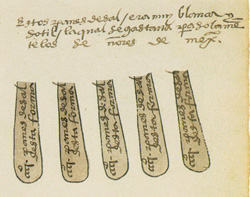 Estos panes de sal / eran muy blancas y
dotil / la qual se gastava para solame
te los señores de mex.
iiij panes de sal
desta forma
iiij panes de sal
desta forma
iiij panes de sal
desta forma
iiij panes de sal
desta forma
iiij panes de sal
desta forma